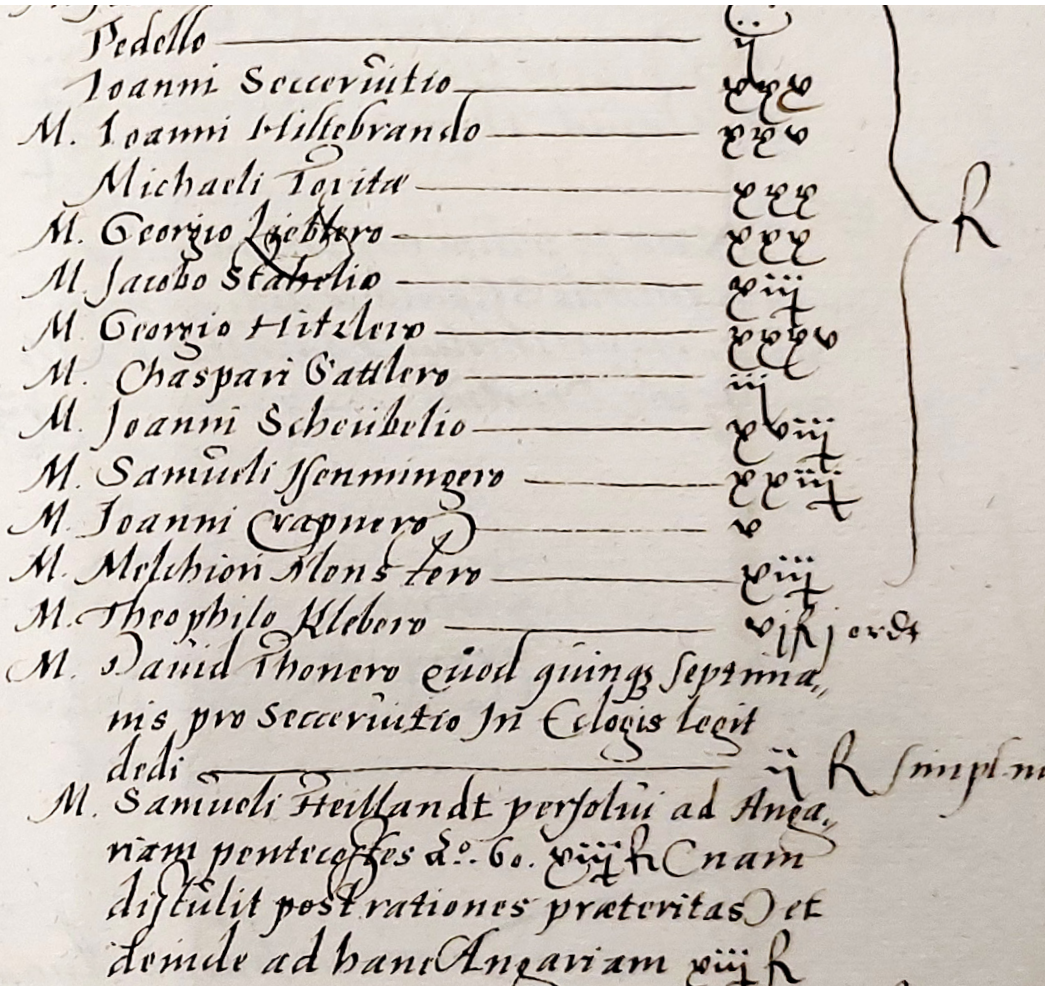 Pedello ij
Ioanni Secceruitio xxv
M. Ioanni Hiltebrando xxv
Michaeli Toxitæ xxx
M. Georgio Lieblero xxx
M. Jacobo Stahelio xviij
M. Georgio Hitzlero xxxv
M. Chaspari Gattlero iij
M. Joanni Scheübelio xviij
M. Samüeli Henmingero xxiij
M. Ioanni Crapnero x
M. Melchiori Monstero xiij
M. Theophilo Klebero vj fl j ordt
M. Dauid Thonero quod quinqꝫ septima„
nis pro Secceruitio In Eclogis legit
dedi ij fl
M. Samüeli Heillandt persolui ad Anga„
riam pentecostes Aº. 60. xiij fl (nam
distulit post rationes præteritas) et
deinde ad hanc Angariam xiij fl
fl